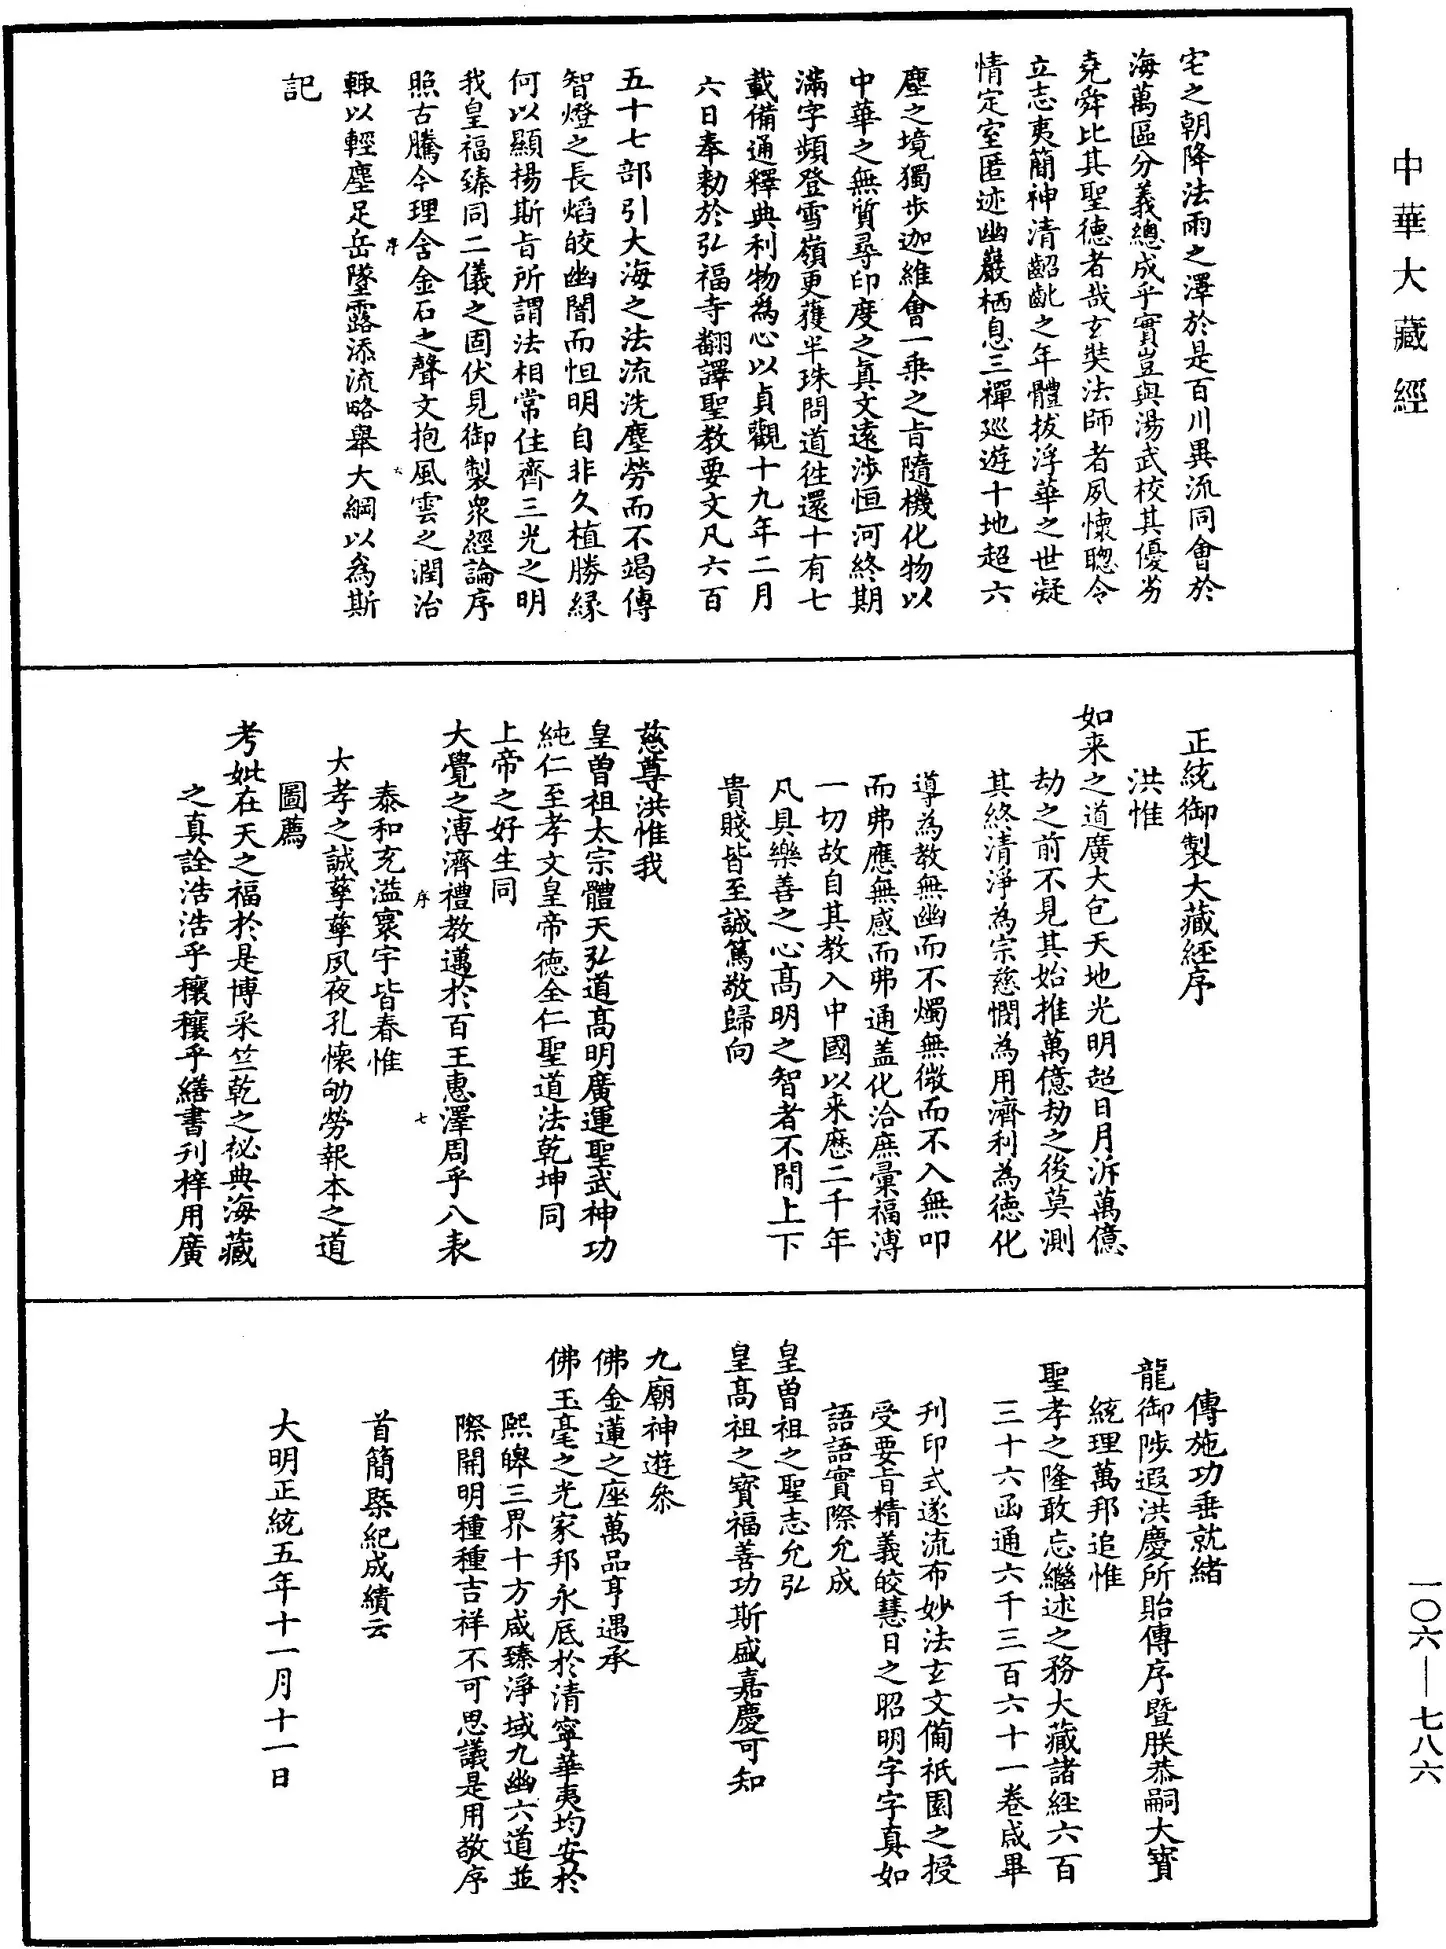 中華大藏經
宅之朝降法雨之澤於是百川異流同會於
海萬區分義總成乎實豈與湯武校其優劣
堯舜比其聖德者哉玄奘法師者夙懷聰令
立志夷簡神清齠齔之年體拔浮華之世凝
情定室匿迹幽巖栖息三禪巡遊十地超六
塵之境獨步迦維會一乘之旨隨機化物以
中華之無質尋印度之真文遠涉恒河終期
滿字頻登雪嶺更獲半珠問道往還十有七
載備通釋典利物為心以貞觀十九年二月
六日奉勅於弘福寺翻譯聖教要文凡六百
五十七部引大海之法流洗塵勞而不竭傳
智燈之長焰皎幽闇而恒明自非久植勝緣
何以顯揚斯旨所謂法相常住齊三光之明
我皇福臻同二儀之固伏見御製眾經論序
照古騰今理含金石之聲文抱風雲之潤治
序 六
輒以輕塵足岳墜露添流略舉大綱以為斯
記
正統御製大藏經序
洪惟
如来之道廣大包天地光明超日月泝萬億
劫之前不見其始推萬億劫之後莫測
其終清淨為宗慈憫為用濟利為德化
導為教無幽而不燭無微而不入無叩
而弗應無感而弗通蓋化洽庶彙福溥
一切故自其教入中國以来歷二千年
凡具樂善之心高明之智者不閒上下
貴賤皆至誠篤敬歸向
慈尊洪惟我
皇曾祖太宗體天弘道高明廣運聖武神功
純仁至孝文皇帝德全仁聖道法乾坤同
上帝之好生同
大覺之溥濟禮教邁於百王惠澤周乎八表
序 七
泰和充溢寰宇皆春惟
大孝之誠孳孳夙夜孔懷劬勞報本之道
圖薦
考妣在天之福於是博采竺乾之祕典海藏
之真詮浩浩乎穰穰乎繕書刊梓用廣
傳施功垂就緒
龍御陟遐洪慶所貽傳序暨朕恭嗣大寶
統理萬邦追惟
聖孝之隆敢忘繼述之務大藏諸經六百
三十六函通六千三百六十一卷咸畢
刊印式遂流布妙法玄文備祇園之授
受要旨精義皎慧日之昭明字字真如
語語實際允成
皇曾祖之聖志允弘
皇高祖之寶福善功斯盛嘉慶可知
九廟神遊參
佛金蓮之座萬品亨遇承
佛玉毫之光家邦永底於清寧華夷均安於
熙皞三界十方咸臻淨域九幽六道並
際開明種種吉祥不可思議是用敬序
首簡槩紀成績云
大明正統五年十一月十一日
一〇六—七八六